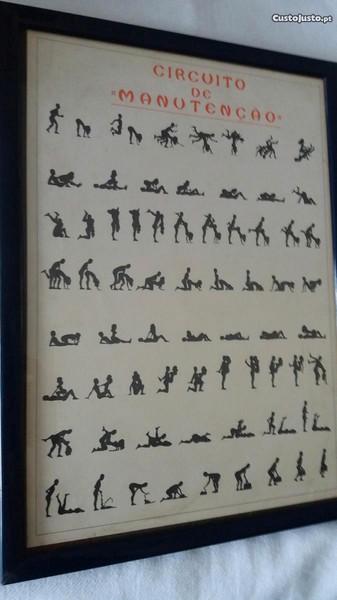 CustoJusto.pt
CIRCUITO
DE
"MANUTENÇÃO"